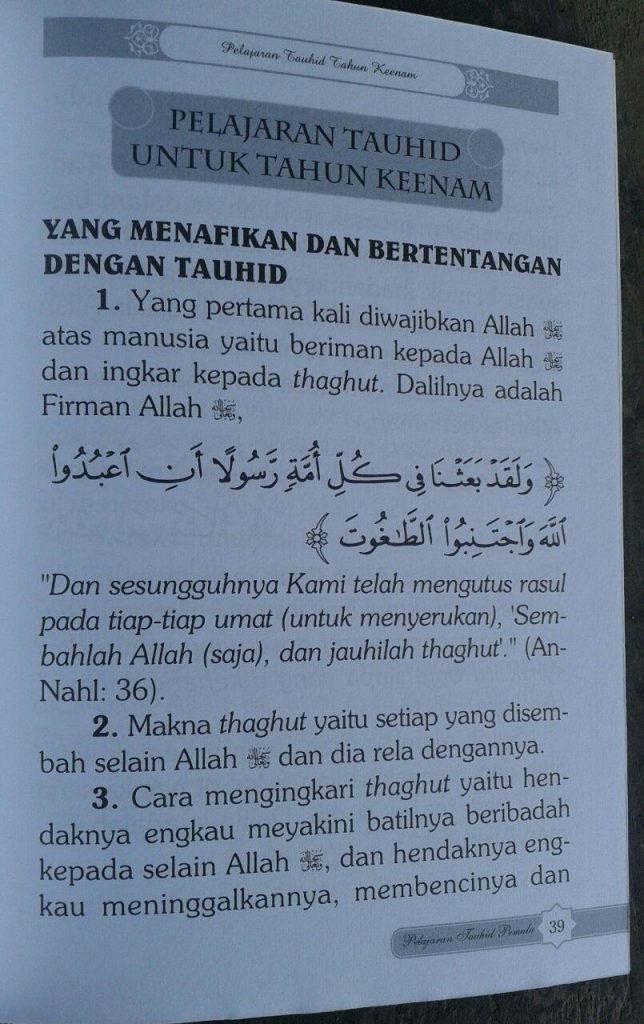 Pelajaran Tauhid Tahun Keenam
PELAJARAN TAUHID
UNTUK TAHUN KEENAM
YANG MENAFIKAN DAN BERTENTANGAN
DENGAN TAUHID
1. Yang pertama kali diwajibkan Allah ﷻ
atas manusia yaitu beriman kepada Allah ﷻ
dan ingkar kepada thaghut. Dalilnya adalah
Firman Allah ﷻ,
﴿ وَلَقَدْ بَعَثْنَا فِي كُلِّ أُمَّةٍ رَّسُولًا أَنِ ٱعْبُدُوا۟
ٱللَّهَ وَٱجْتَنِبُوا۟ ٱلطَّٰغُوتَ ﴾
"Dan sesungguhnya Kami telah mengutus rasul
pada tiap-tiap umat (untuk menyerukan), 'Sem-
bahlah Allah (saja), dan jauhilah thaghut'." (An-
Nahl: 36).
2. Makna thaghut yaitu setiap yang disem-
bah selain Allah ﷻ dan dia rela dengannya.
3. Cara mengingkari thaghut yaitu hen-
daknya engkau meyakini batilnya beribadah
kepada selain Allah ﷻ, dan hendaknya eng-
kau meninggalkannya, membencinya dan
Pelajaran Tauhid Pemula 39